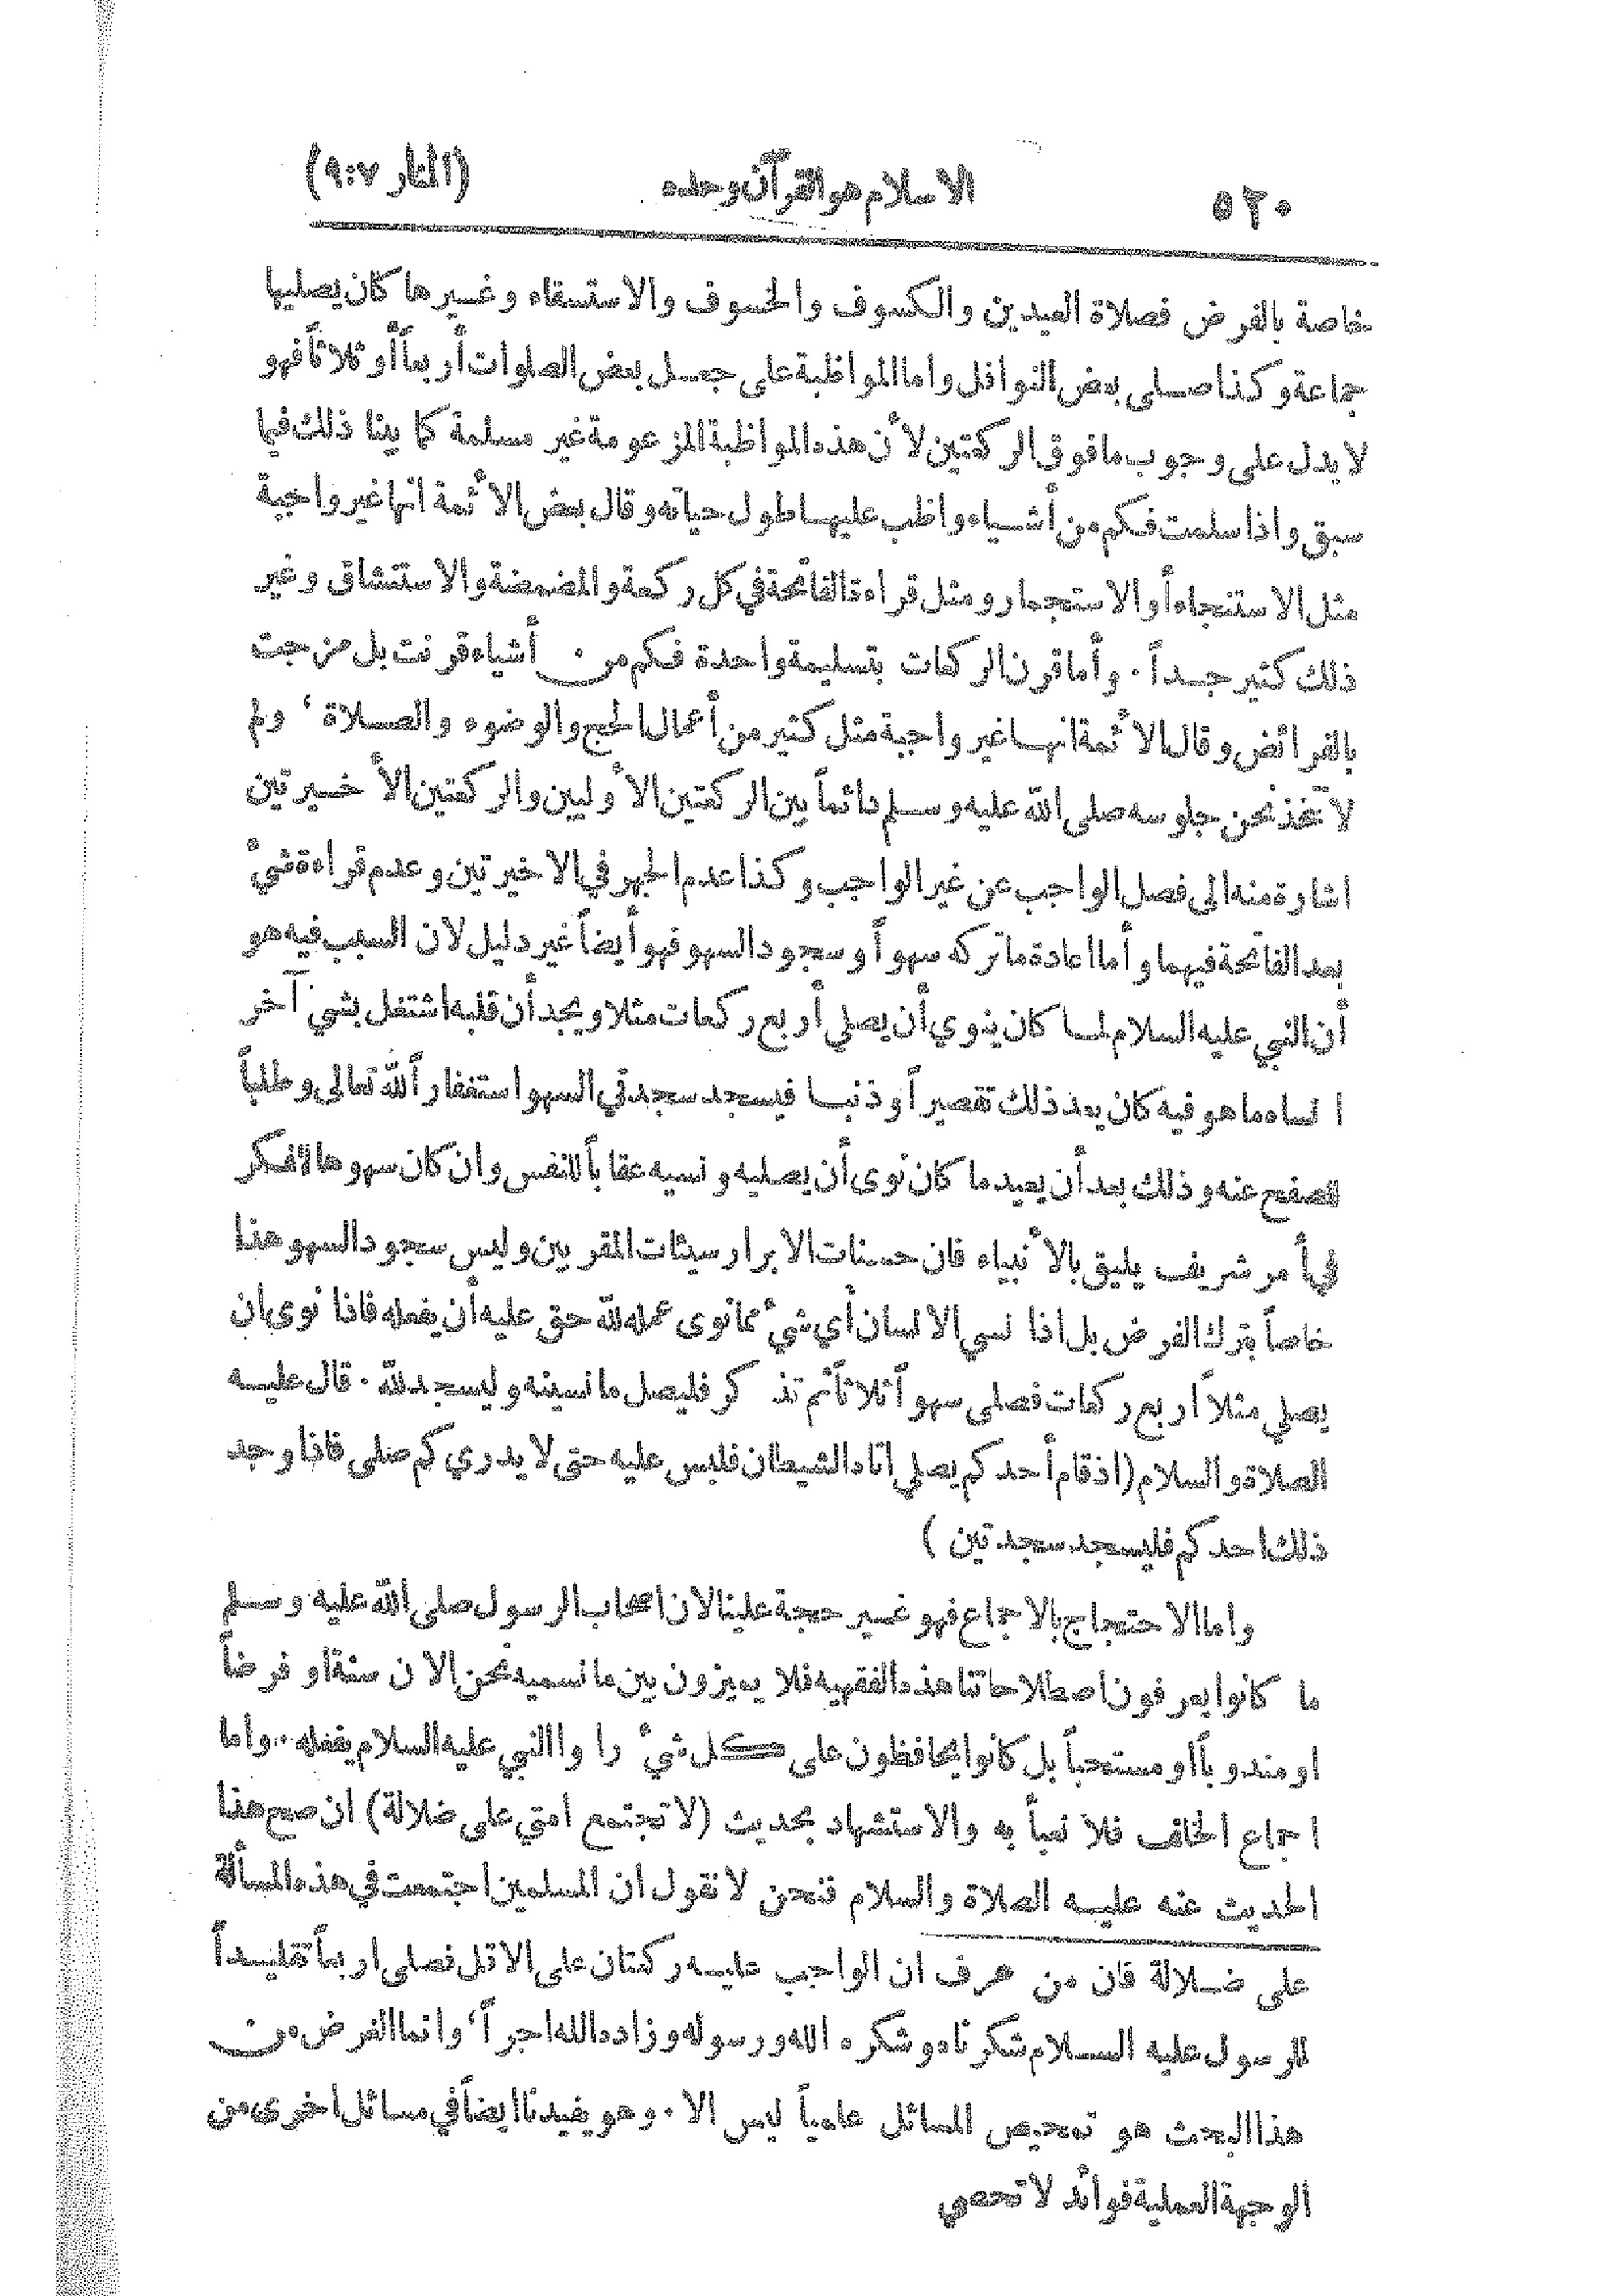 ٥٢٠ الاسلام هو القرآن وحده (المنار ٧:٩)
خاصة بالفرض فصلاة العيدين والكسوف والخسوف والاستسقاء وغيرها كان يصليها
جماعة وكذا صلى بعض النوافل واما المواظبة على جعل بعض الصلوات أربعاً أو ثلاثاً فهو
لا يدل على وجوب مافوق الركعتين لأن هذه المواظبة المزعومة غير مسلمة كما بينا ذلك فيما
سبق واذا سلمت فكم من أشياء واظب عليها طول حياته وقال بعض الأئمة انها غير واجبة
مثل الاستنجاء أو الاستجمار ومثل قراءة الفاتحة في كل ركعة والمضمضة والاستنشاق وغير
ذلك كثير جداً . وأما قرن الركعات بتسليمة واحدة فكم من أشياء قرنت بل مزجت
بالفرائض وقال الأئمة انها غير واجبة مثل كثير من أعمال الحج والوضوء والصلاة ، ولم
لا تخذ نحن جلوسه صلى الله عليه وسلم دائماً بين الركعتين الأوليين والركعتين الأخيرتين
اشارة منه الى فصل الواجب عن غير الواجب وكذا عدم الجهر في الاخيرتين وعدم قراءة شيء
بعد الفاتحة فيهما وأما اعادة ما تركه سهواً وسجود السهو فهو أيضاً غير دليل لان السبب فيه هو
أن النبي عليه السلام لما كان ينوي أن يصلي أربع ركعات مثلا ويجد أن قلبه اشتغل بشيء آخر
انساه ما هو فيه كان يعد ذلك تقصيراً وذنبا فيسجد سجدتي السهو استغفاراً لله تعالى وطلباً
للصفح عنه وذلك بعد أن يعيد ما كان نوى أن يصليه ونسيه عقاباً للنفس وان كان سهوها لتفكر
في أمر شريف يليق بالأنبياء فان حسنات الابرار سيئات المقربين وليس سجود السهو هذا
خاصاً بترك الفرض بل اذا نسي الانسان أي شيء مما نوى عمله لله حق عليه أن يفعله فاذا نوى ان
يصلي مثلاً أربع ركعات فصلى سهواً ثلاثاً ثم تذكر فليصل ما نسينه وليسجد لله . قال عليه
الصلاة والسلام (اذ قام أحدكم يصلي اتاه الشيطان فلبس عليه حتى لا يدري كم صلى فاذا وجد
ذلك احدكم فليسجد سجدتين )
واما الاحتجاج بالاجماع فهو غير حجة علينا لان اصحاب الرسول صلى الله عليه وسلم
ما كانوا يعرفون اصطلاحاتنا هذه الفقهيه فلا يميزون بين ما نسميه نحن الان سنة او فرضاً
او مندوباً او مستحباً بل كانوا يحافظون على كل شيء راوا النبي عليه السلام يفعله .. واما
اجماع الخلف فلا نعبأ به والاستشهاد بحديث (لا تجتمع امتي على ضلالة) ان صح هذا
الحديث عنه عليه الصلاة والسلام فنحن لا نقول ان المسلمين اجتمعت في هذه المسألة
على ضلالة فان من عرف ان الواجب عليه ركعتان على الاقل فصلى اربعاً تقليداً
للرسول عليه السلام شكرناه وشكره الله ورسوله وزاده الله اجراً، وانما الغرض من
هذا البحث هو تمحيص المسائل علمياً ليس الا . وهو يفيدنا ايضاً في مسائل اخرى من
الوجهة العملية فوائد لا تحصى